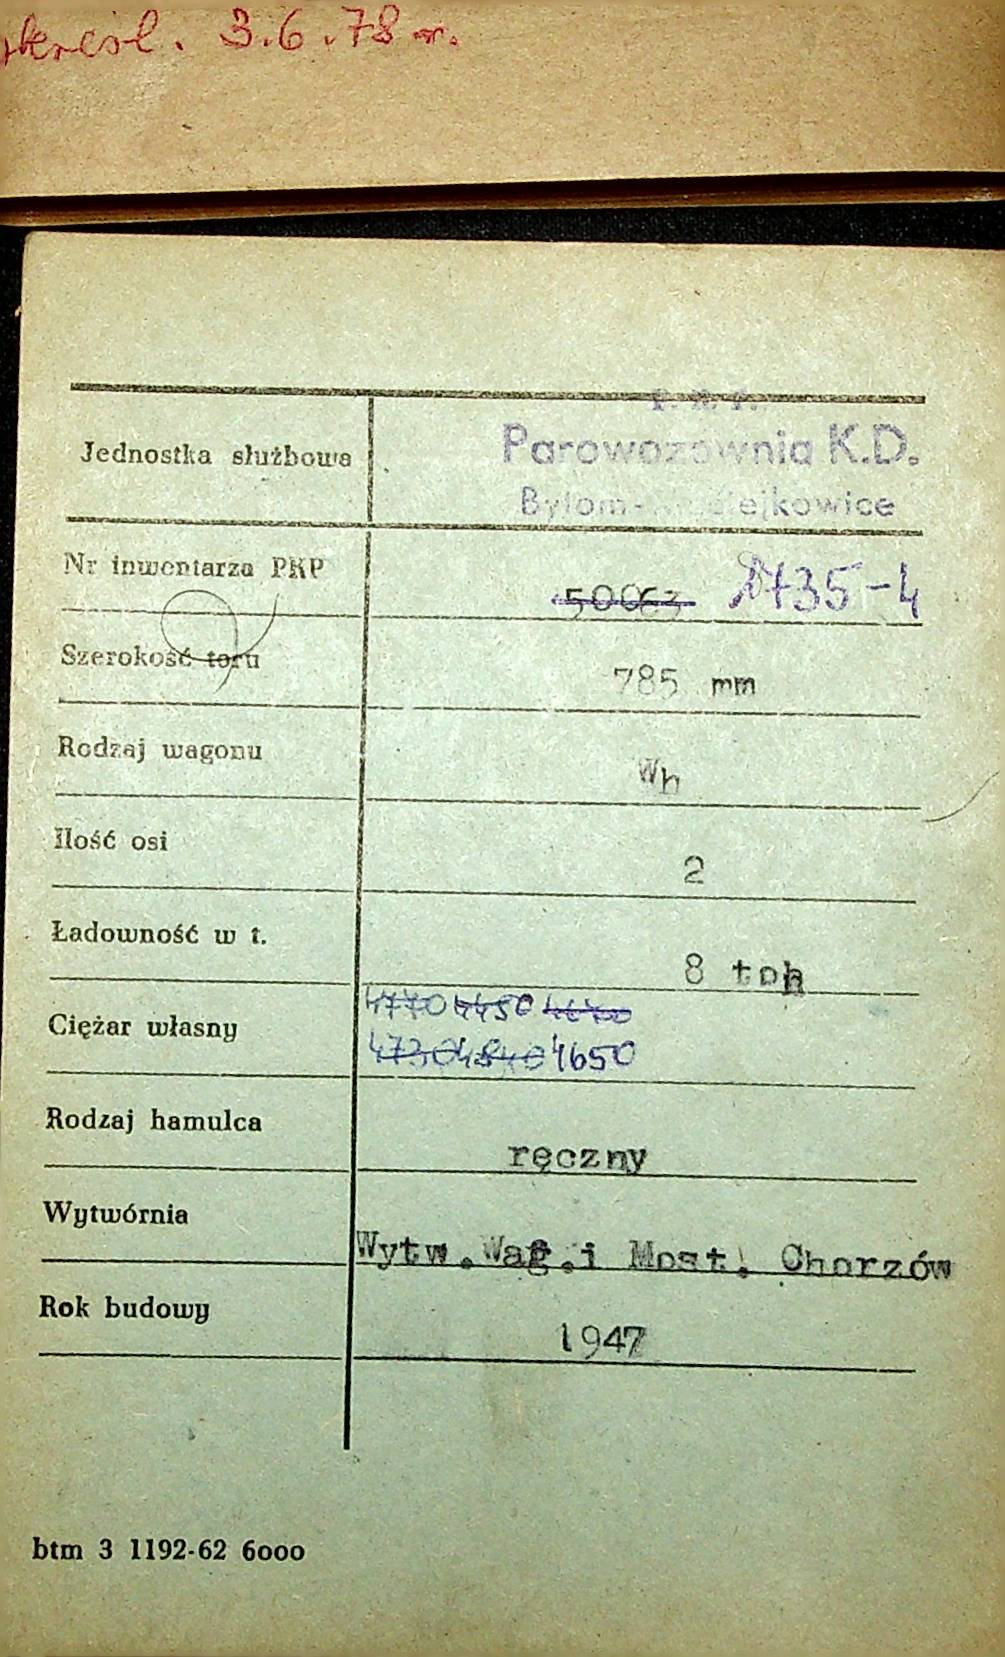 skreśl. 3.6.78 r.
P.K.P.
Jednostka służbowa Parowozownia K.D.
Bytom-
Nr inwentarza PKP 50063 1735-4
Szerokość toru 785 mm
Rodzaj wagonu Wh
Ilość osi 2
Ładowność w t. 8 ton
4770 4450
Ciężar własny 4730 4840 4650
Rodzaj hamulca ręczny
Wytwórnia Wytw.Wag.i Most. Chorzów
Rok budowy 1947
btm 3 1192-62 6000